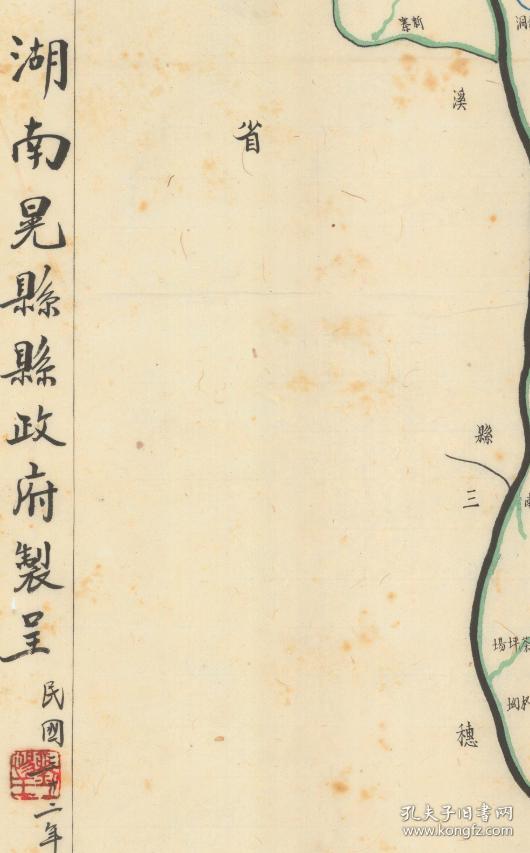 湖南晃縣縣政府製呈
民國三十二年
省
溪
縣
三
穗
洞
孔夫子旧书网
www.kongfz.com